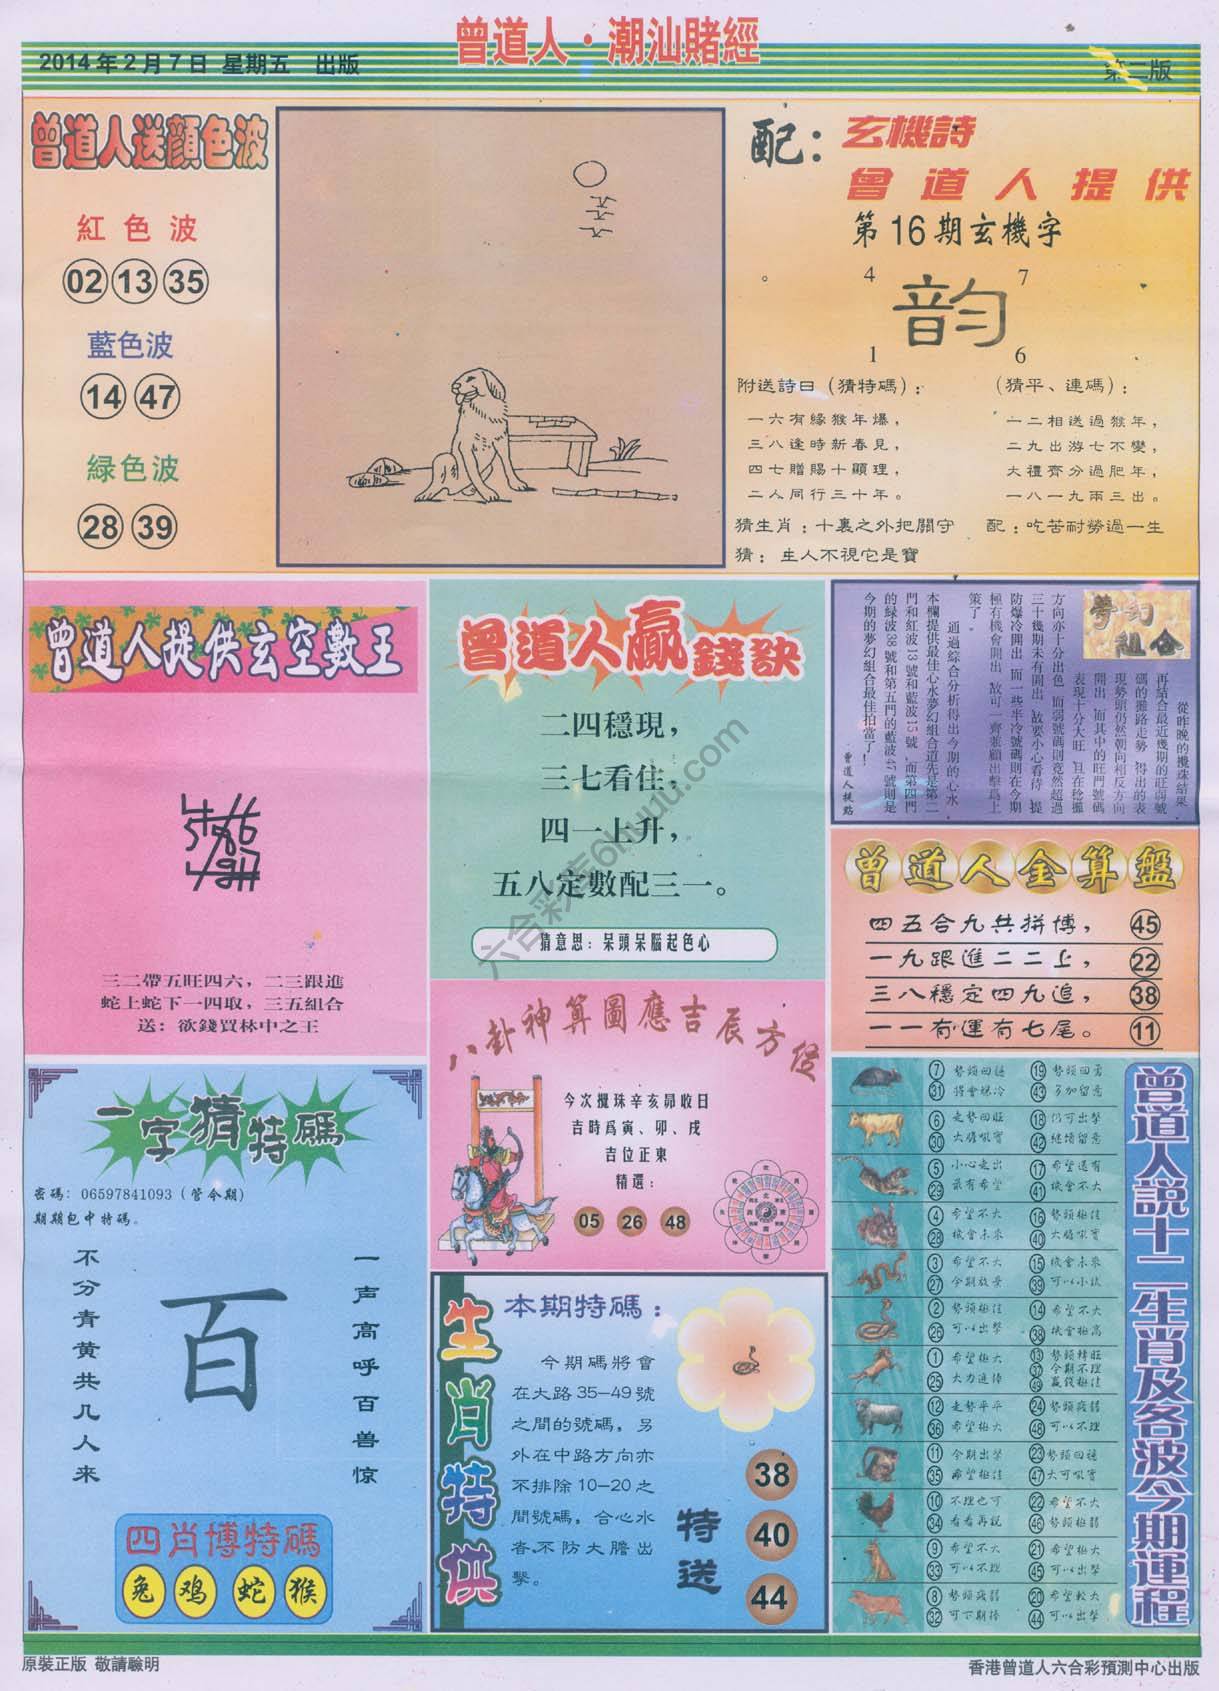 曾道人·潮汕賭經
2014年2月7日 星期五 出版
第二版
曾道人送顏色波
紅色波
02 13 35
藍色波
14 47
緑色波
28 39
配：
玄機詩
曾道人提供
第16期玄機字
4 7
韵
1 6
附送詩曰（猜特碼）：
一六有緣猴年爆，
三八逢時新春見，
四七贈賜十顯理，
二人同行三十年。
（猜平、連碼）：
一二相送過猴年，
二九出游七不變，
大禮齊分過肥年，
一八一九兩三出。
猜生肖：十裏之外把關守
配：吃苦耐勞過一生
猜：生人不視它是寶
曾道人提供玄空數王
三二帶五旺四六，二三跟進
蛇上蛇下一四取，三五組合
送：欲錢買林中之王
曾道人贏錢訣
二四穩現，
三七看住，
四一上升，
五八定數配三一。
猜意思：呆頭呆腦起色心
夢幻組合
從昨晚的攪珠結果
再結合最近幾期的旺弱號
碼的攤路走勢，得出的表
現勢頭仍然朝向相反方向
開出，而其中的旺門號碼
表現十分大旺，且在稔攤
方向亦十分出色，而弱號碼則竟然超過
三十幾期未有開出，故要小心看待，提
防爆冷開出，而一些半冷號碼則在今期
極有機會開出，故可一齊兼顧出擊爲上
策了。
通過綜合分析得出今期的心水
本欄提供最佳心水夢幻組合道先是第二
門和紅波13號和藍波15號，而第四門
的緑波38號和第五門的藍波47號則是
今期的夢幻組合最佳拍當了！
曾道人提點
曾道人金算盤
四五合九共拼博， 45
一九跟進二二上， 22
三八穩定四九追， 38
一一有運有七尾。 11
八卦神算圖應吉辰方位
今次攪珠辛亥昴收日
吉時爲寅、卯、戌
吉位正東
精選：
05 26 48
一字猜特碼
密碼：06597841093（管令期）
期期包中特碼。
不分青黄共几人来
百
一声高呼百兽惊
四肖博特碼
兔 鸡 蛇 猴
生肖特供
本期特碼：
今期碼將會
在大路35—49號
之間的號碼，另
外在中路方向亦
不排除10—20之
間號碼，合心水
者，不防大膽出
擊。
特送
38
40
44
曾道人説十二生肖及各波今期運程
7 勢頭回穩 19 勢頭回勇
31 將會梯冷 43 多加留意
6 走勢回旺 18 仍可出擊
30 大膽吼實 42 繼續留意
5 小心走出 17 希望還有
29 最有希望 41 機會不大
4 希望不大 16 勢頭極佳
28 機會未來 40 大膽吼實
3 希望不大 15 機會未來
27 今期放棄 39 可以小試
2 勢頭極佳 14 希望不大
26 可以出擊 38 機會極高
1 希望極大 13 勢頭轉旺
25 大力追捧 37 今期不理
49 贏錢極佳
12 走勢平平 24 勢頭疲弱
36 希望極大 48 可以不理
11 今期出擊 23 勢頭回穩
35 希望極佳 47 大可吼實
10 不理也可 22 希望不大
34 看看再説 46 勢頭極弱
9 希望不大 21 希望極大
33 可以不理 45 可以出擊
8 勢頭疲弱 20 希望較大
32 可下期捧 44 可以出擊
六合彩库6huuu.com
原裝正版 敬請驗明
香港曾道人六合彩預測中心出版